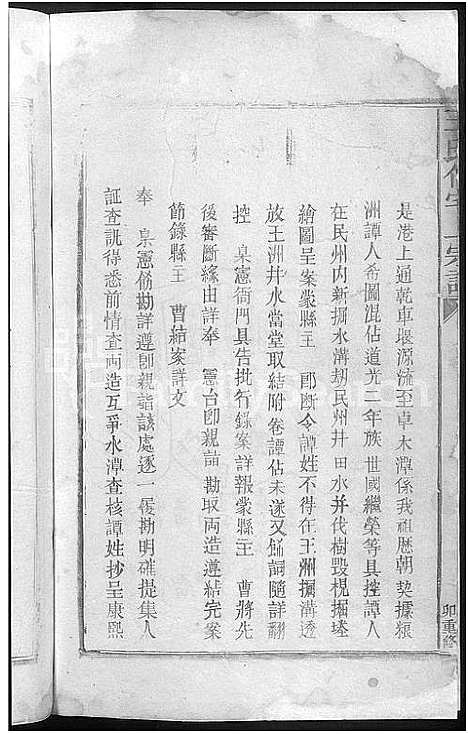 是港上通乾車堰源流至卓木潭係我祖歷朝契據粮
洲譚人希圖混佔道光二年族世國繼榮等具控譚人
在民州內新掘水溝刧民州井田水并伐樹毀梘掘墶
繪圖呈案蒙縣主　郎斷令譚姓不得在王洲掘溝透
放王洲井水當堂取結附卷譚佔未遂又餙詞隨詳翻
控　臬憲衙門具告批行錄案詳報蒙縣主　曹將先
後審斷緣由詳奉　憲台卽親詣勘取両造遵結完案
節錄縣主　曹結案詳文
奉　臬憲飭勘詳遵卽親詣該處逐一履勘明確提集人
証查訊得悉前情查両造互爭水潭查核譚姓抄呈康熙
卯重修